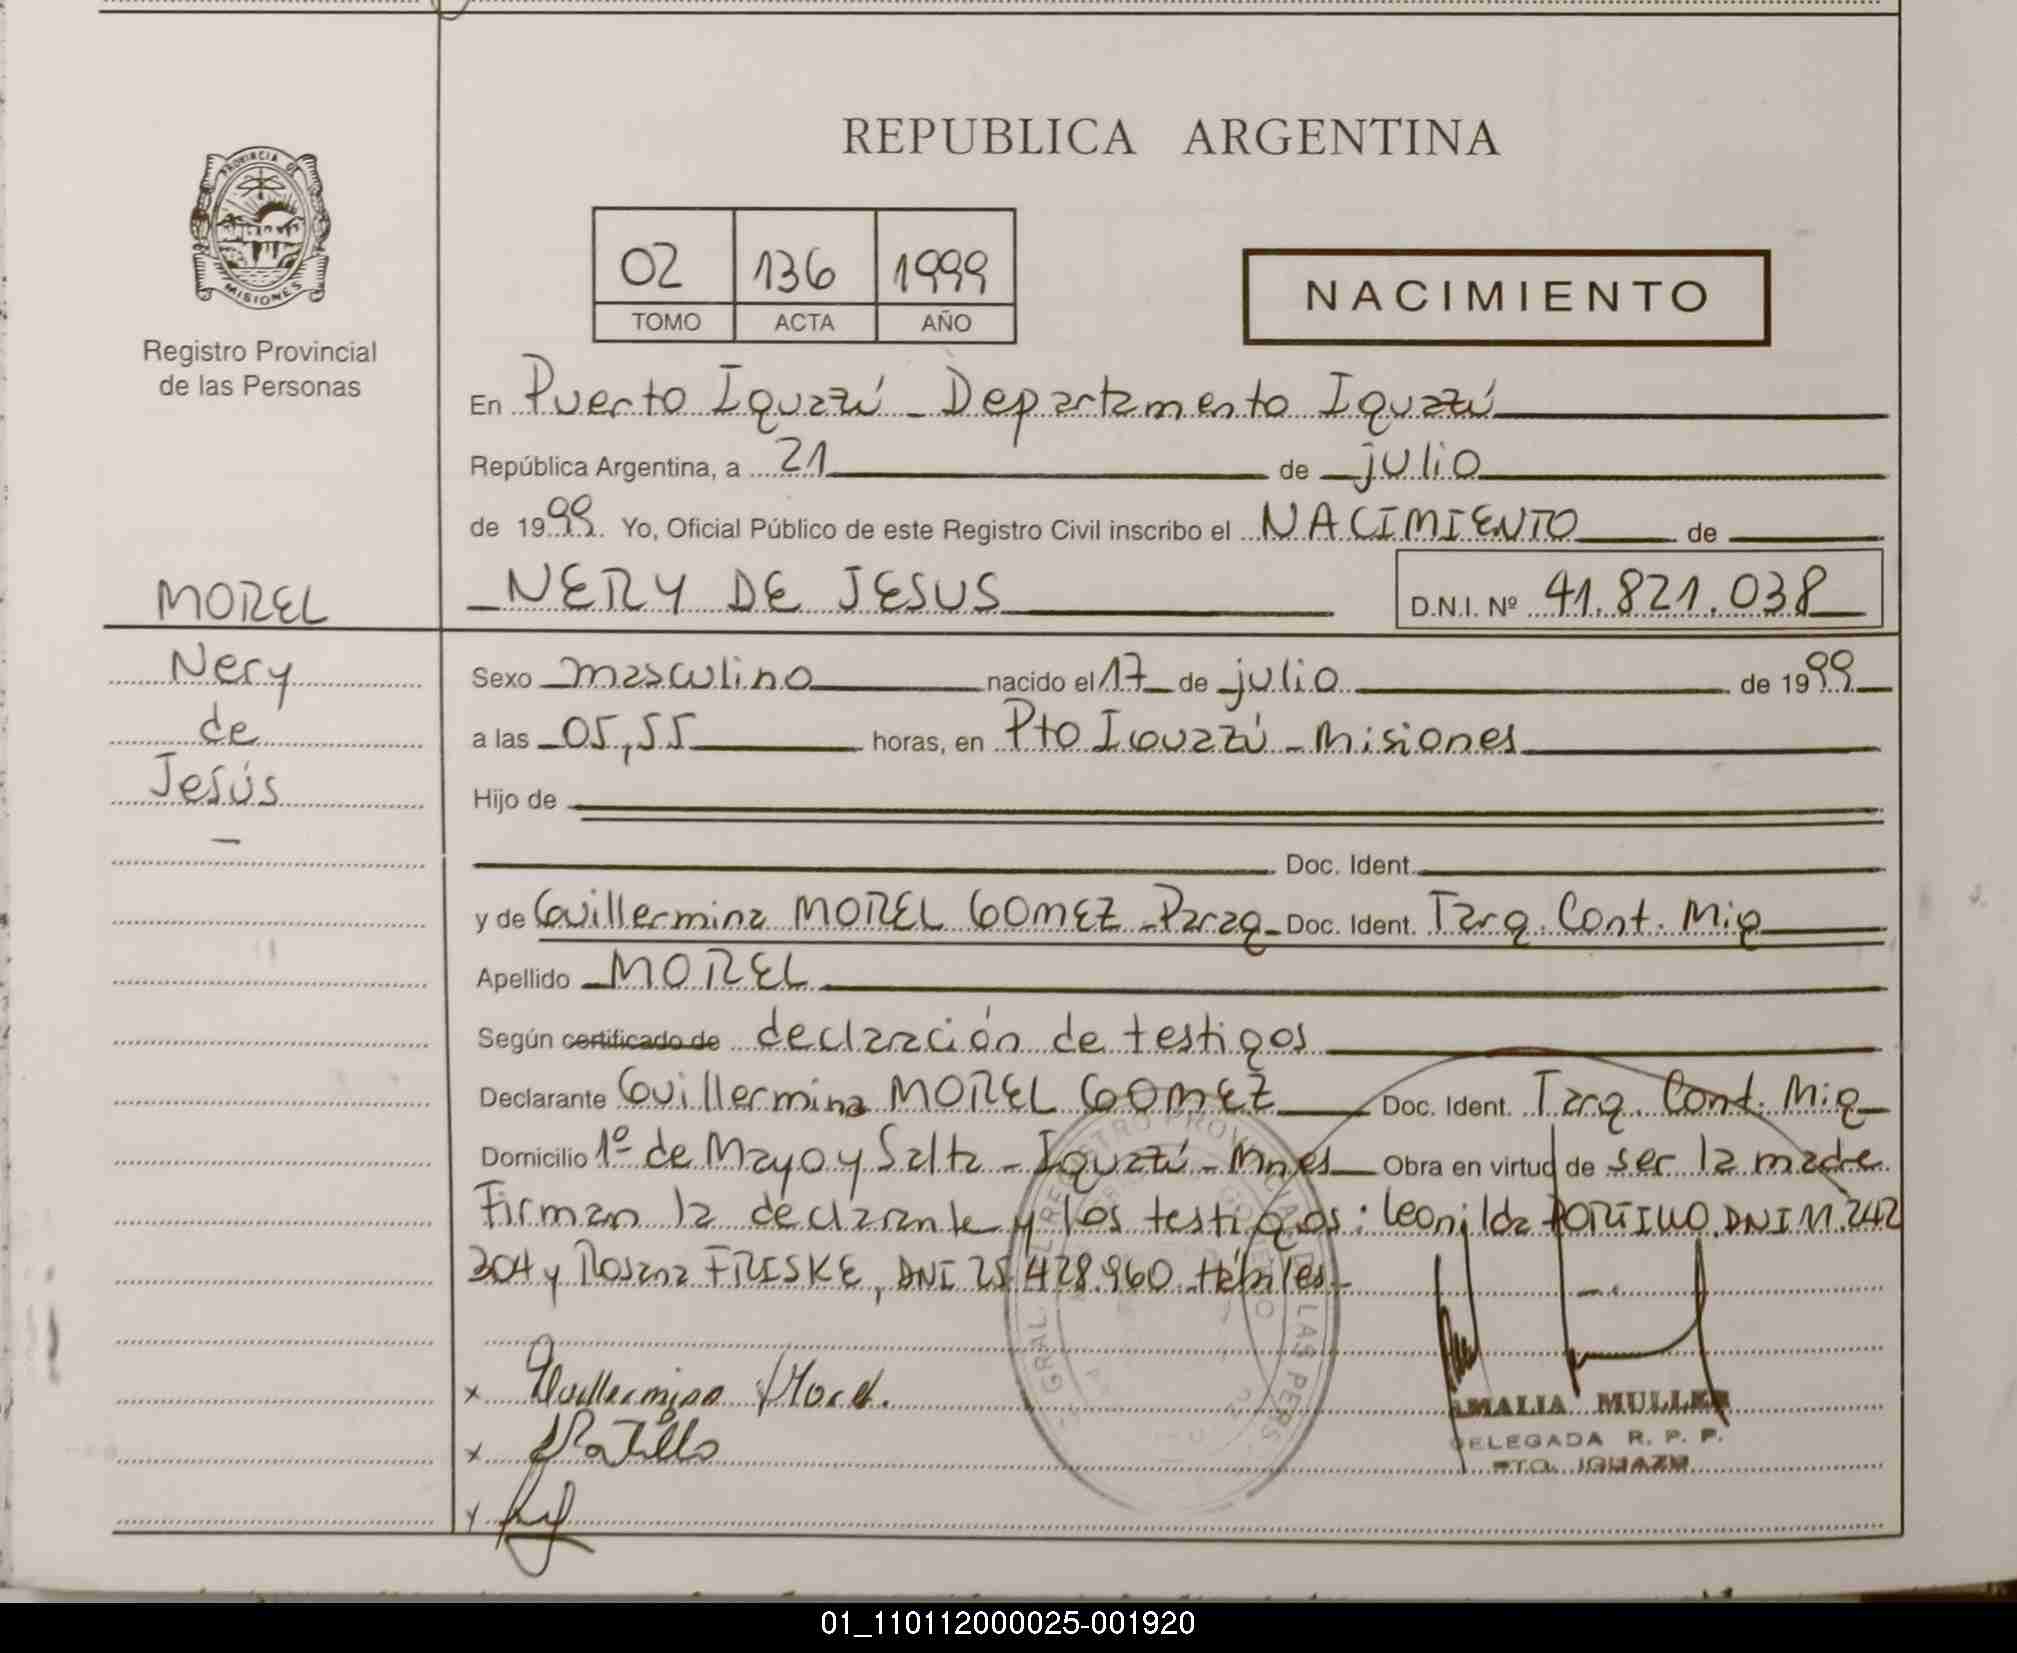 REPUBLICA ARGENTINA
PROVINCIA DE
MISIONES
Registro Provincial
de las Personas
02 136 1999
TOMO ACTA AÑO
NACIMIENTO
En Puerto Iguazú - Departamento Iguazú
República Argentina, a 21 de julio
de 1999. Yo, Oficial Público de este Registro Civil inscribo el NACIMIENTO de
MOREL
NERY DE JESUS D.N.I. Nº 41.821.038
Nery
de
Jesús
Sexo masculino nacido el 17 de julio de 1999
a las 05,55 horas, en Pto Iguazú - Misiones
Hijo de
Doc. Ident.
y de Guillermina MOREL GOMEZ - Parag - Doc. Ident. Targ. Cont. Mig
Apellido MOREL
Según certificado de declaración de testigos
Declarante Guillermina MOREL GOMEZ Doc. Ident. Targ. Cont. Mig
Domicilio 1º de Mayo y Salta - Iguazú - Mnes Obra en virtud de ser la madre
Firman la declarante y los testigos: Leonilda PORTILLO, DNI 11.242
304 y Rosana FRISKE, DNI 25.428.960 Hábiles -
x Guillermina Morel.
x Portillo
AMALIA MULLER
DELEGADA R. P. P.
PTO. IGUAZU
01_110112000025-001920